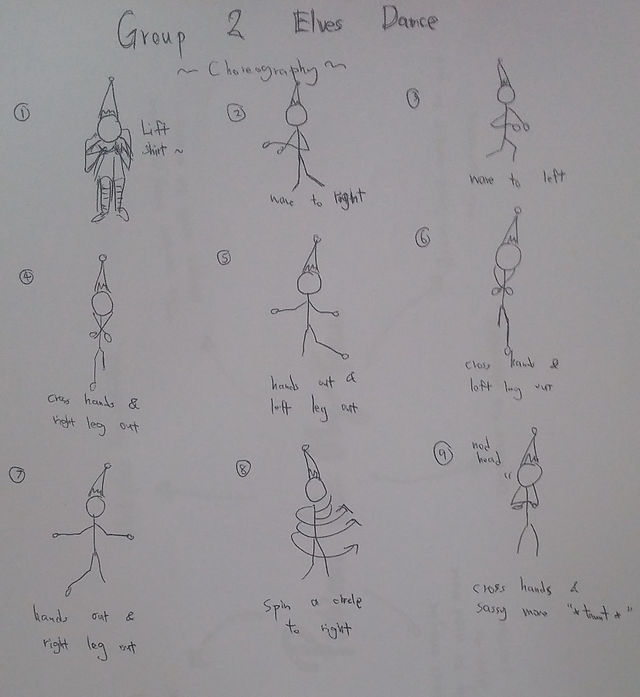 Group 2 Elves Dance
~ Choreography ~
①
Lift
shirt ~
②
wave to right
③
wave to left
④
cross hands &
right leg out
⑤
hands out &
left leg out
⑥
cross hands &
left leg out
⑦
hands out &
right leg out
⑧
spin a circle
to right
⑨
nod
head
cross hands &
sassy move "* *"